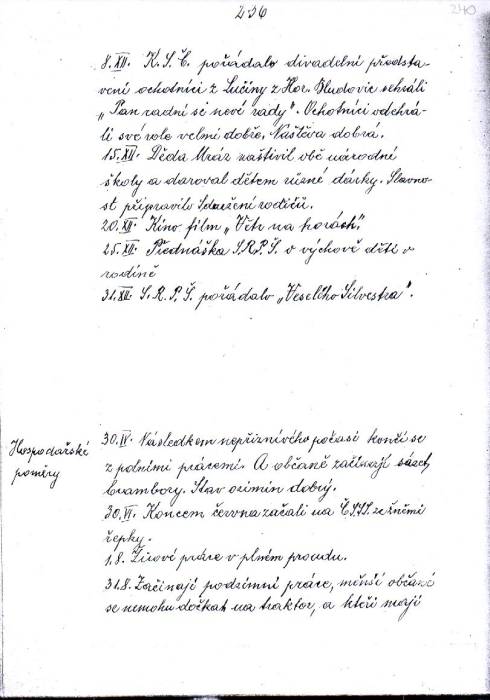 236
240
8.XII. K.S.Č. pořádalo divadelní předsta-
vení ochotníci z Lučiny z Hor. Bludovic sehráli
„Pan radní si neví rady". Ochotníci odehrá-
li své role velmi dobře. Návštěva dobrá.
15.XII. Děda Mráz navštívil obě národné
školy a daroval dětem různé dárky. Slavno-
st připravilo Sdružení rodičů.
20.XII. Kino film „Vítr na horách".
25.XII. Přednáška S.R.P.Š. o výchově dětí v
rodině
31.XII. S.R.P.Š. pořádalo „Veselého Silvestra".
Hospodářské
poměry
30.IV. Následkem nepříznivého počasí končí se
z polními pracemi. A občané začínají sázet
brambory. Stav ozimin dobrý.
30.VI. Koncem června začali na Č.S.S. ze žněmi
řepky.
1.8. Žňové práce v plném proudu.
31.8. Začínají podzimní práce, měnší občané
se nemohu dočkat na traktor, a kteří mají